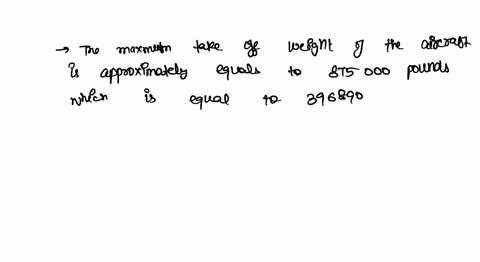 → The maximum take off weight of the aircraft
is approximately equals to 875000 pounds
which is equal to 396890